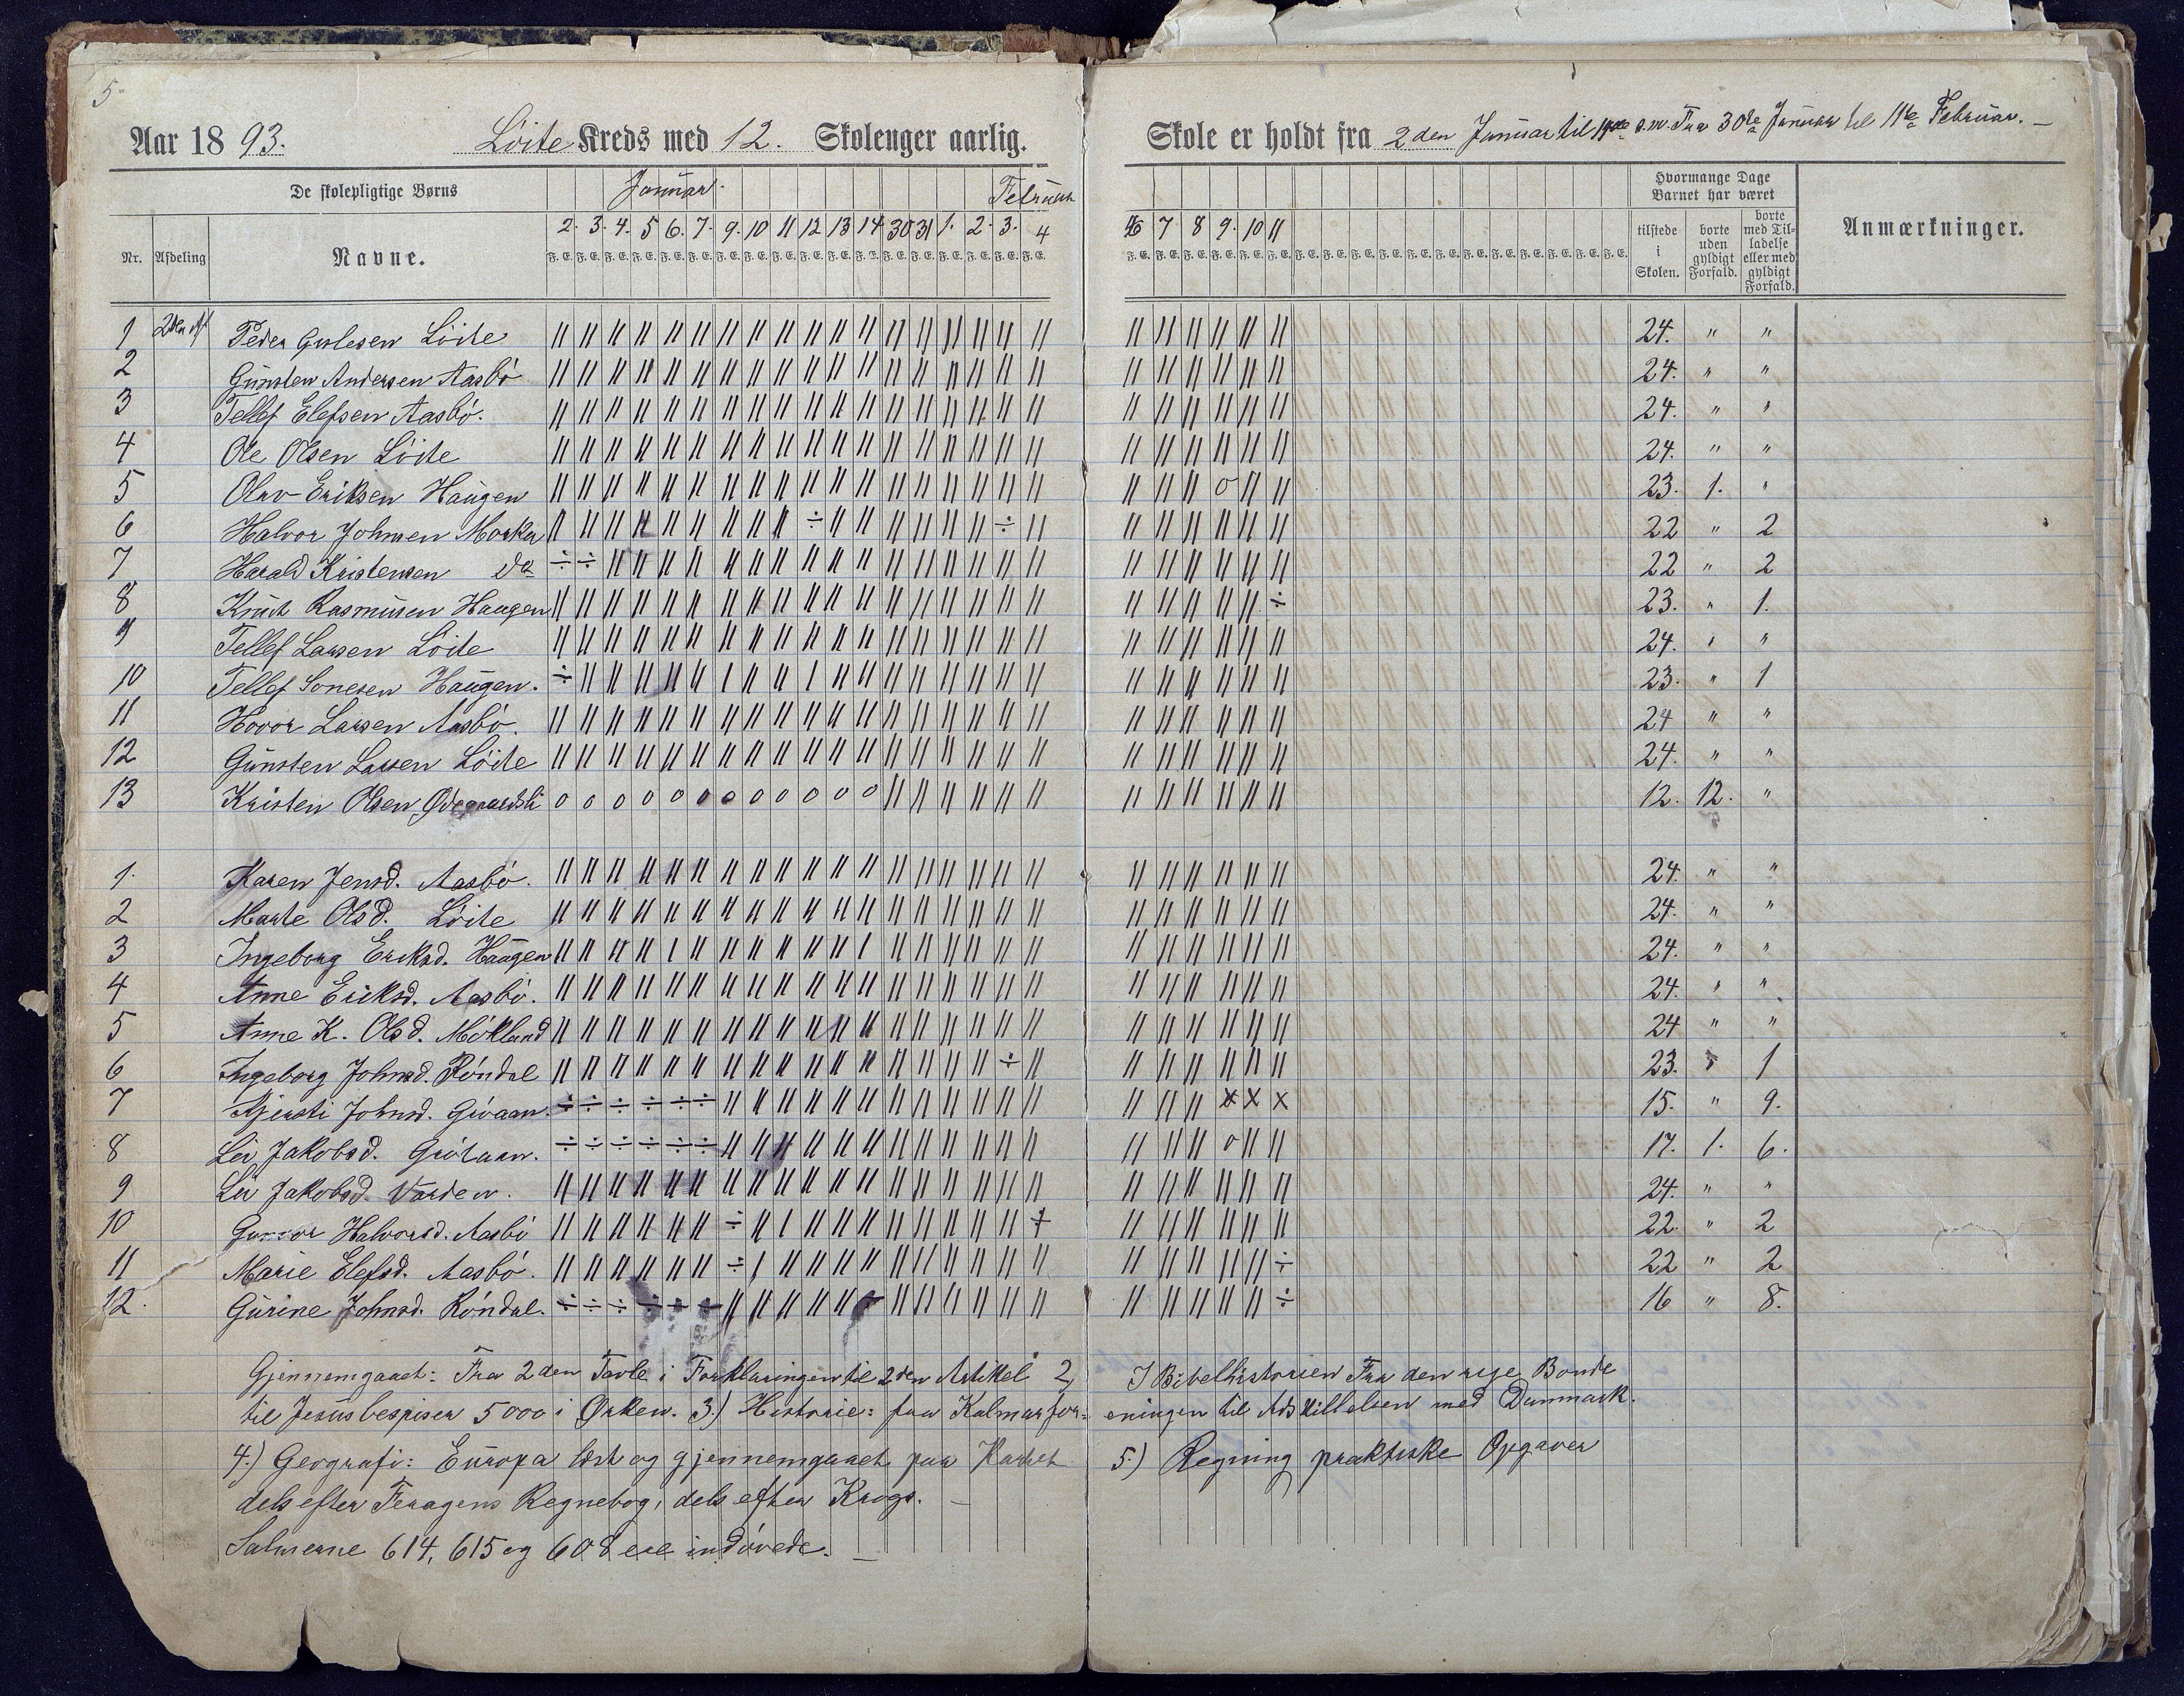 5
Aar 1893. Löite Kreds med 12. Skolenger aarlig. Skole er holdt fra 2den Januar til 14de s.m. Fra 30te Januar til 11te Februar. —
De skolepligtige Børns Januar. Februar Hvormange Dage Barnet har været Anmærkninger.
Nr. Afdeling Navne. 2. 3. 4. 5 6. 7. 9. 10 11 12 13 14 30 31 1. 2. 3. 4 6 7 8 9. 10 11 tilstede i Skolen. borte uden gyldigt Forfald. borte med Tilladelse eller med gyldigt Forfald.
F. E. F. E. F. E. F. E. F. E. F. E. F. E. F. E. F. E. F. E. F. E. F. E. F. E. F. E. F. E. F. E. F. E. F. E.
1 2den Af Peder Gislesen Löite 24. " "
2 Gunsten Andersen Aasbö 24. " "
3 Tellef Elefsen Aasbö. 24. " "
4 Ole Olsen Löite 24. " "
5 Olav Eriksen Haugen 23. 1. "
6 Halvor Johnsen Morker 22 " 2
7 Harald Kristensen do 22 " 2
8 Knut Rasmusen Haugen 23. " 1.
9 Tellef Larsen Löite 24. " "
10 Tellef Sonesen Haugen. 23. " 1
11 Hovor Larsen Aasbö. 24 " "
12 Gunsten Larsen Löite 24. " "
13 Kristen Olsen Ødegaardsli 0 0 0 0 0 0 0 0 0 0 0 0 12. 12. "
1. Karen Jensd. Aasbö. 24. " "
2 Marte Olsd. Löite 24. " "
3 Ingeborg Eriksd. Haugen 24. " "
4 Anne Eriksd. Aasbö. 24. " "
5 Anne K. Olsd. Mökland 24 " "
6 Ingeborg Johnsd. Röndal 23. " 1
7 Kjersti Johnsd. ÷ ÷ ÷ ÷ ÷ ÷ x x x 15. " 9.
8 Liv Jakobsd. ÷ ÷ ÷ ÷ ÷ ÷ 0 17. 1. 6.
9 Liv Jakobsd. Varden. 24. " "
10 Gunvor Halvorsd. Aasbö 22. " 2
11 Marie Elefsd. Aasbö. 22 " 2
12. Gurine Johnsd. Röndal. ÷ ÷ ÷ ÷ ÷ ÷ 16 " 8.
Gjennemgaaet: Fra 2den Tavle i Forklaringen til 2den Artikel 2, I Bibelhistorien Fra den rige Bonde
til Jesus bespiser 5000 i Ørken. 3.) Historie: fra Kalmarforeningen til Adskillelsen med Danmark.
4.) Geografi: Europa læst og gjennemgaaet paa Kartet 5.) Regning praktiske Opgaver
dels efter Feragens Regnebog, dels efter Krogs. —
Salmerne 614, 615 og 608 ere indövede. —